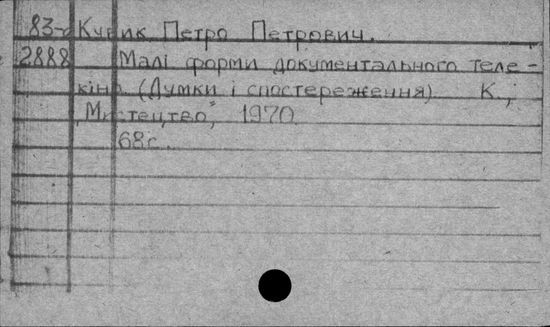 83-
Курик Петро Петрович.
2888 Малі форми документального теле-
кіно (Думки і спостереження) К.,
„Мистецтво”, 1970
68с.